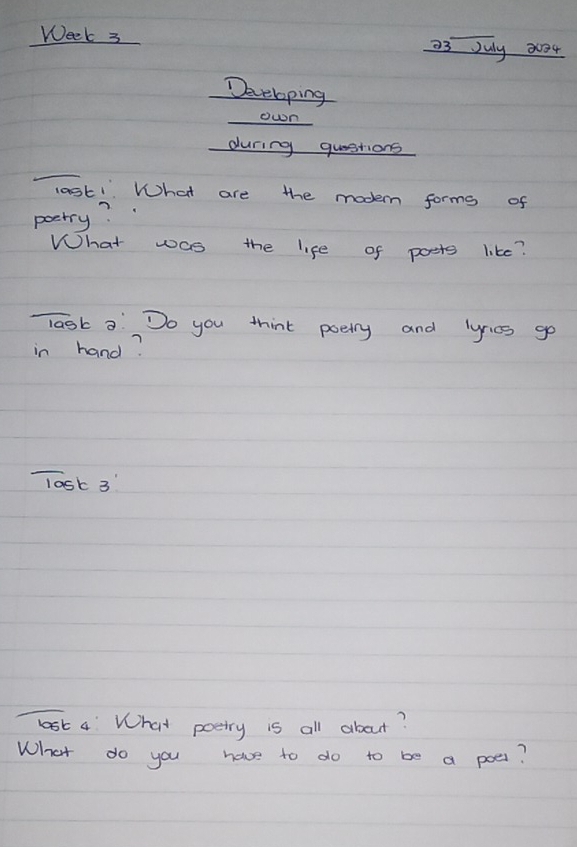 Week 3
23 July 2024
Developing
own
during questions
Task 1: What are the modern forms of
poetry?
What was the life of poets like?
Task 2: Do you think poetry and lyrics go
in hand?
Task 3:
Task 4: What poetry is all about?
What do you have to do to be a poet?